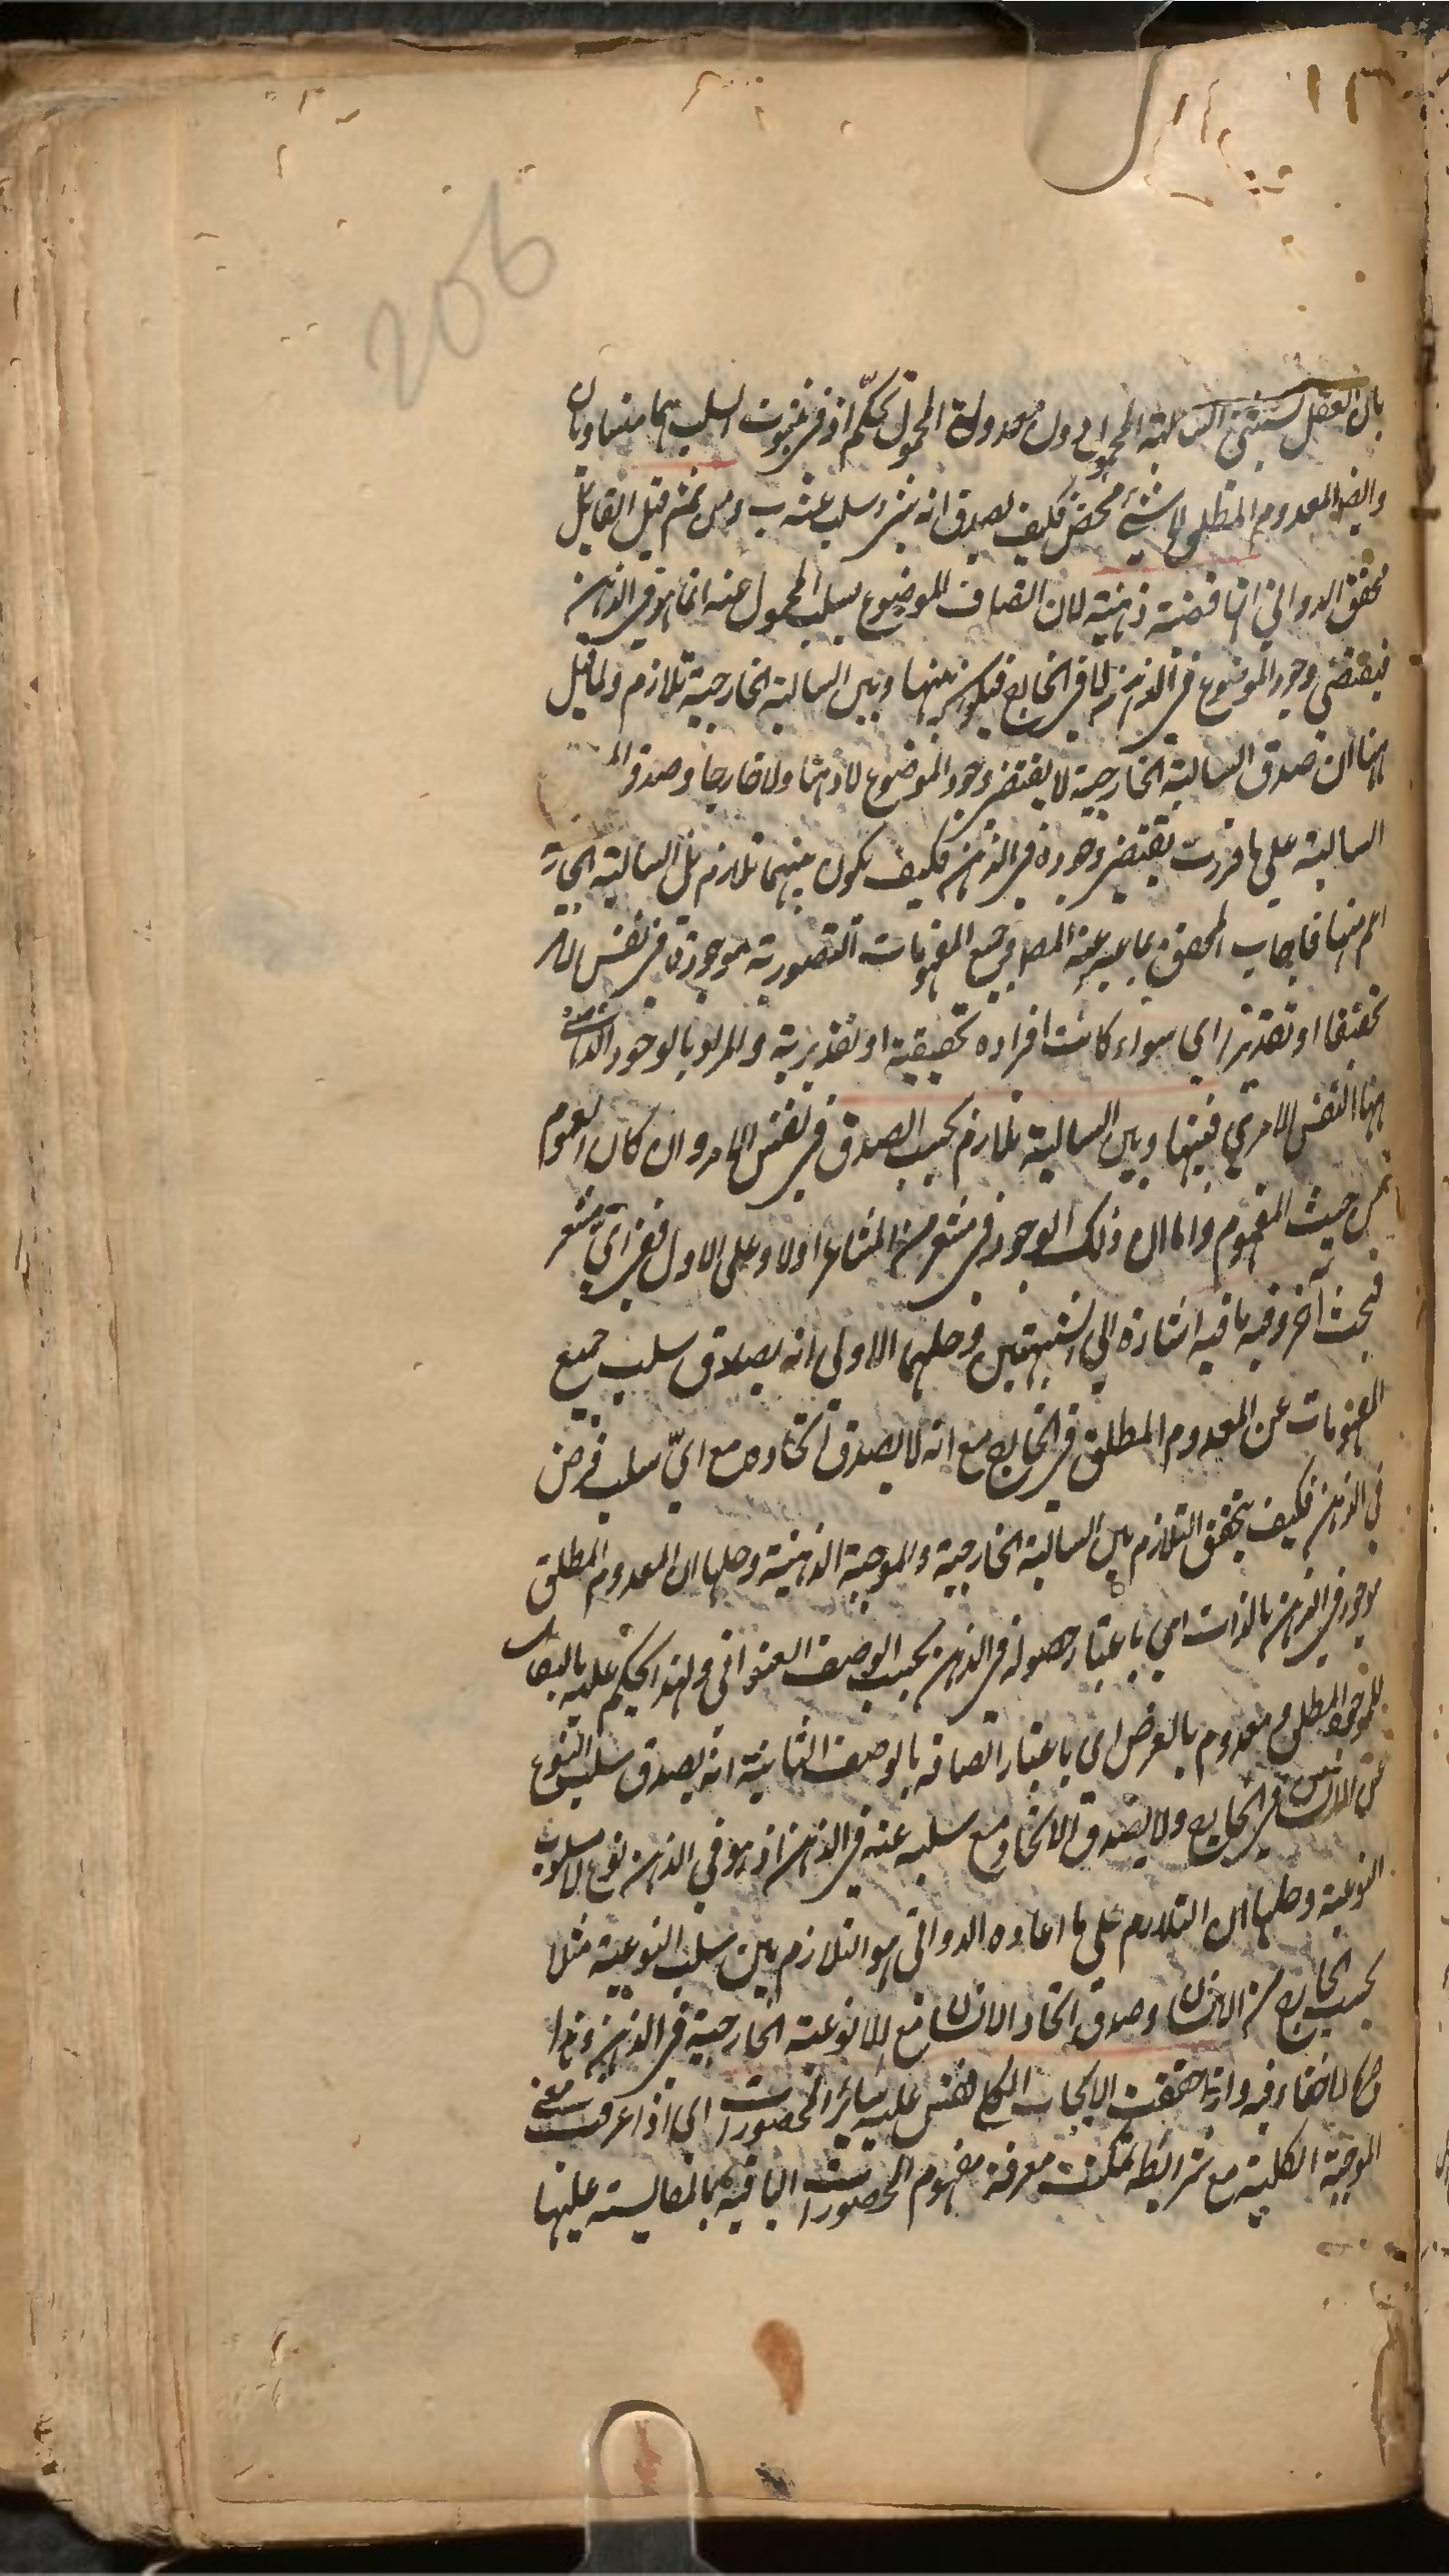 206
بان العقل يستثنى السالبة المحمول دون معدولة المحمول تحكم اذ في ثبوت السلب هما متساويان
وايضا المعدوم المطلق لا شيء محض فكيف يصدق انه شيء سلب عنه ب ومن ثم قيل القائل
محقق الدواني انها قضية ذهنية لان اتصاف الموضوع بسلب المحمول عنه انما هو في الذهن
فيقتضي وجود الموضوع في الذهن لا في الخارج فيكون بينها وبين السالبة الخارجية تلازم ولما قيل
ههنا ان صدق السالبة الخارجية لا يقتضي وجود الموضوع لا ذهنا ولا خارجا وصدق
السالبة على ما قررت يقتضي وجوده في الذهن فكيف يكون بينهما تلازم بل السالبة الخارجية
اعم منها فاجاب المحقق بما عبر عنه المص جميع المفهومات التصورية موجودة في نفس الامر
تحقيقا او تقديرا اي سواء كانت افراده تحقيقية او تقديرية والمراد بالوجود
ههنا النفس الامري فبينها وبين السالبة تلازم بحسب الصدق في نفس الامر وان كان العموم
من حيث المفهوم واما ان ذلك الوجود في مشعر من المشاعر اولا وعلى الاول ففي اي مشعر
فبحث آخر وفيه ما فيه اشارة الى الشبهتين وحلهما الاولى انه يصدق سلب جميع
المفهومات عن المعدوم المطلق في الخارج مع انه لا يصدق اتحاده مع اي سلب فرض
في الذهن فكيف يتحقق التلازم بين السالبة الخارجية والموجبة الذهنية وحلها ان المعدوم المطلق
موجود في الذهن بالذات اي باعتبار حصوله في الذهن بحسب الوصف العنواني ولهذا يحكم عليه
للموجود المطلق ومعدوم بالعرض اي باعتبار اتصافه بالوصف الثانية انه يصدق سلب النوع
عن الانسان في الخارج ولا يصدق الاتحاد مع سلبه عنه في الذهن اذ هو في الذهن نوع لا مسلوب
النوعية وحلها ان التلازم على ما اعاده الدواني هو التلازم بين سلب النوعية مثلا
بحسب الخارج من الانسان وصدق اتحاد الانسان مع اللانوعية الخارجية في الذهن وهذا
مما لا خفاء فيه واذا حققت الايجاب الكلي فقس عليه سائر المحصورات اي اذا عرفت معنى
الموجبة الكلية مع شرائطه تمكنت معرفة مفهوم المحصورات الباقية بالمقايسة عليها